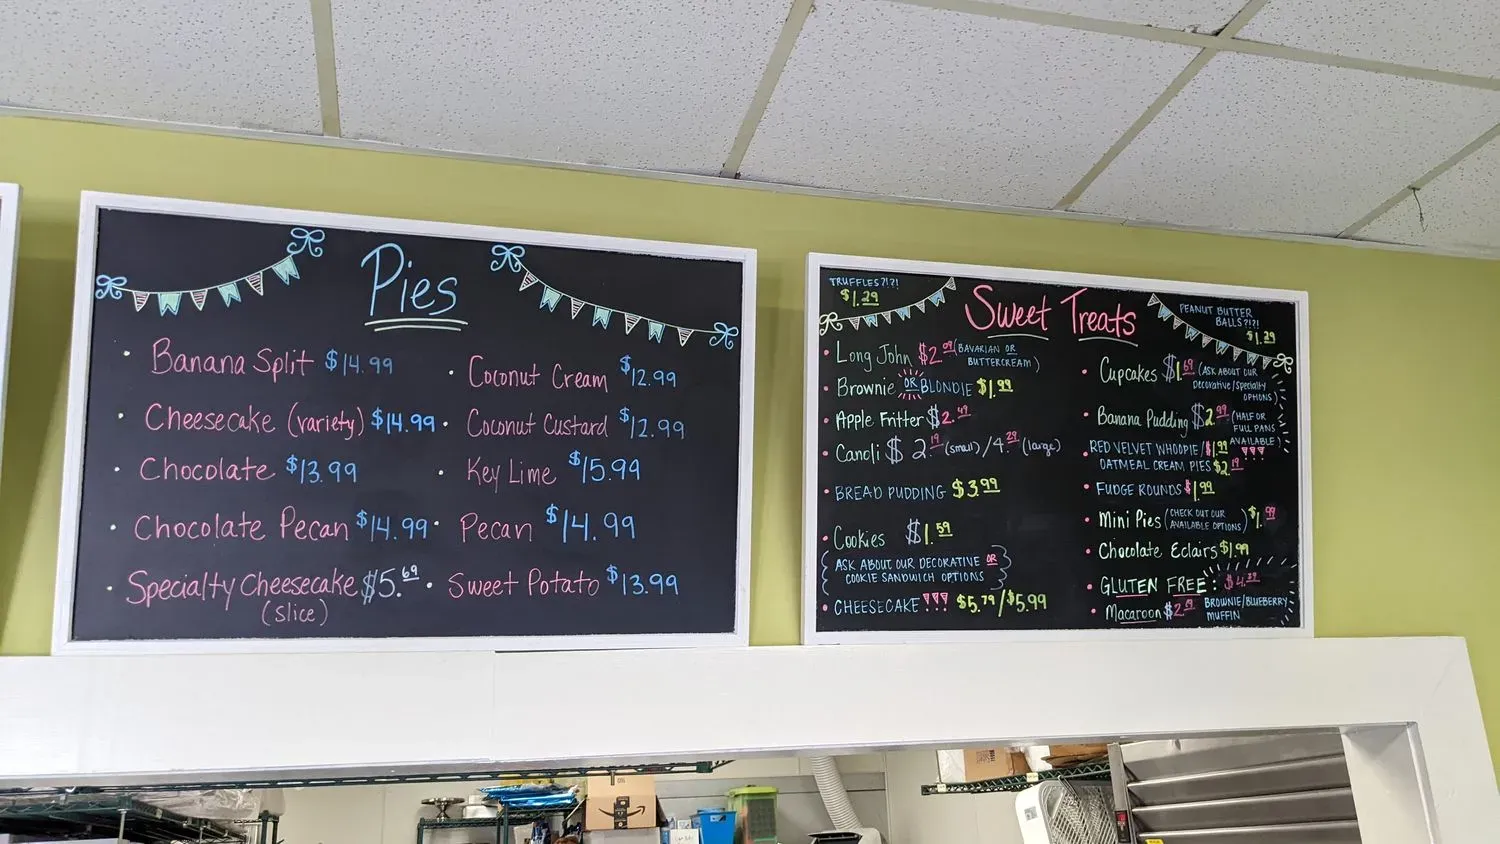 Pies
Banana Split $14.99
Cheesecake (variety) $14.99
Chocolate $13.99
Chocolate Pecan $14.99
Specialty Cheesecake $5.69
(slice)
Coconut Cream $12.99
Coconut Custard $12.99
Key Lime $15.99
Pecan $14.99
Sweet Potato $13.99
TRUFFLES?!?!
$1.29
Sweet Treats
PEANUT BUTTER
BALLS?!?!
$1.29
Long John $2.09 (BAVARIAN OR
BUTTERCREAM)
Brownie OR BLONDIE $1.99
Apple Fritter $2.49
Canoli $2.19 (small) / 4.29 (large)
BREAD PUDDING $3.99
Cookies $1.59
(ASK ABOUT OUR DECORATIVE OR
COOKIE SANDWICH OPTIONS)
CHEESECAKE!!! $5.79/$5.99
Cupcakes $1.69 (ASK ABOUT OUR
Decorative/Specialty
OPTIONS)
Banana Pudding $2.99 (HALF OR
FULL PANS
AVAILABLE)
RED VELVET WHOOPIE/$1.99 !!!
OATMEAL CREAM PIES $2.19
FUDGE ROUNDS $1.99
Mini Pies (CHECK OUT OUR
AVAILABLE OPTIONS) $1.99
Chocolate Eclairs $1.99
GLUTEN FREE: $4.39
Macaroon BROWNIE/BLUEBERRY
MUFFIN